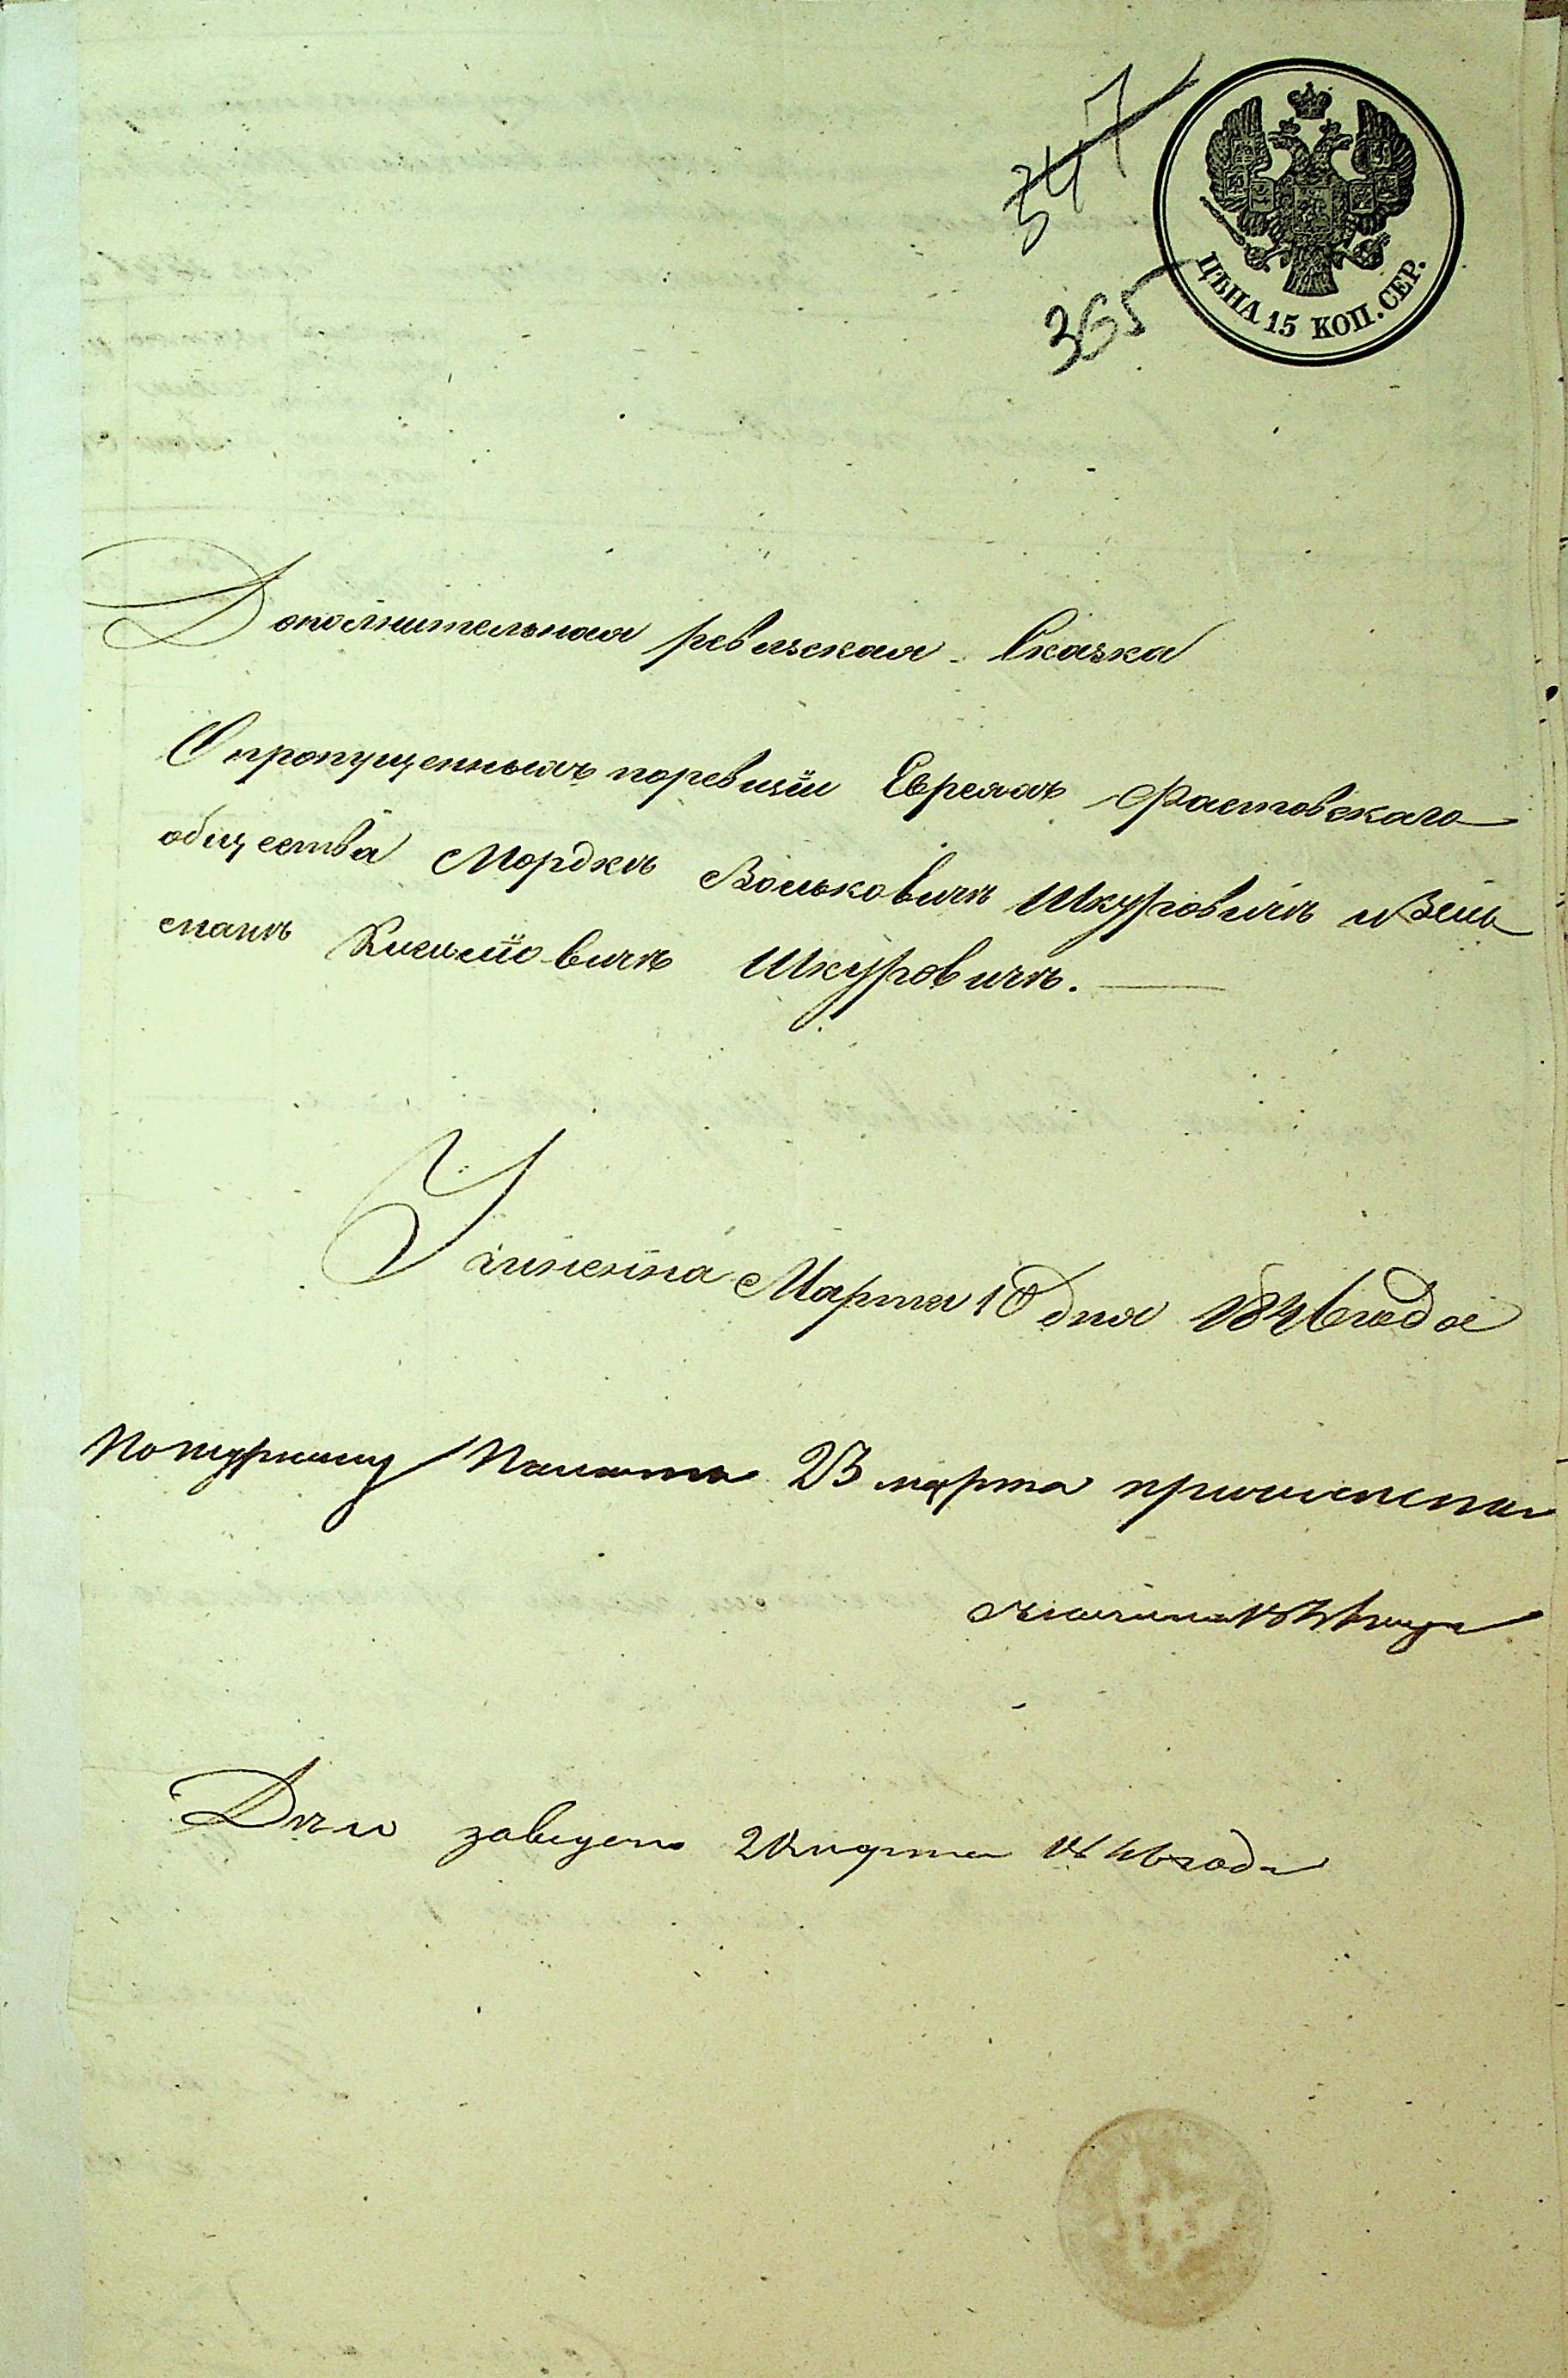 347
365
ЦѢНА 15 КОП. СЕР.
Дополнительная ревизская Сказка
О пропущенныхъ по ревизіи Евреяхъ Фастовскаго
общества Мордкѣ Вольковичѣ Шкуровичѣ и Зель
манѣ Шкуровичѣ.
Учинена Марта 10 дня 1846 года
По журналу Палаты 23 марта
Дѣло заведено марта 1846 года